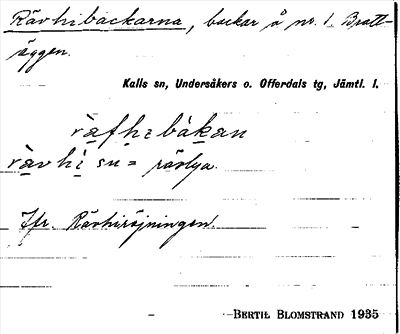 Rävhibackarna, backar å nr. 1 Bratt-
äggen.
Kalls sn, Undersåkers o. Offerdals tg, Jämtl. l.
ràfhɛbákan
ràvhì sn = rävlya.
Jfr. Rävhiröjningen.
BERTIL BLOMSTRAND 1935